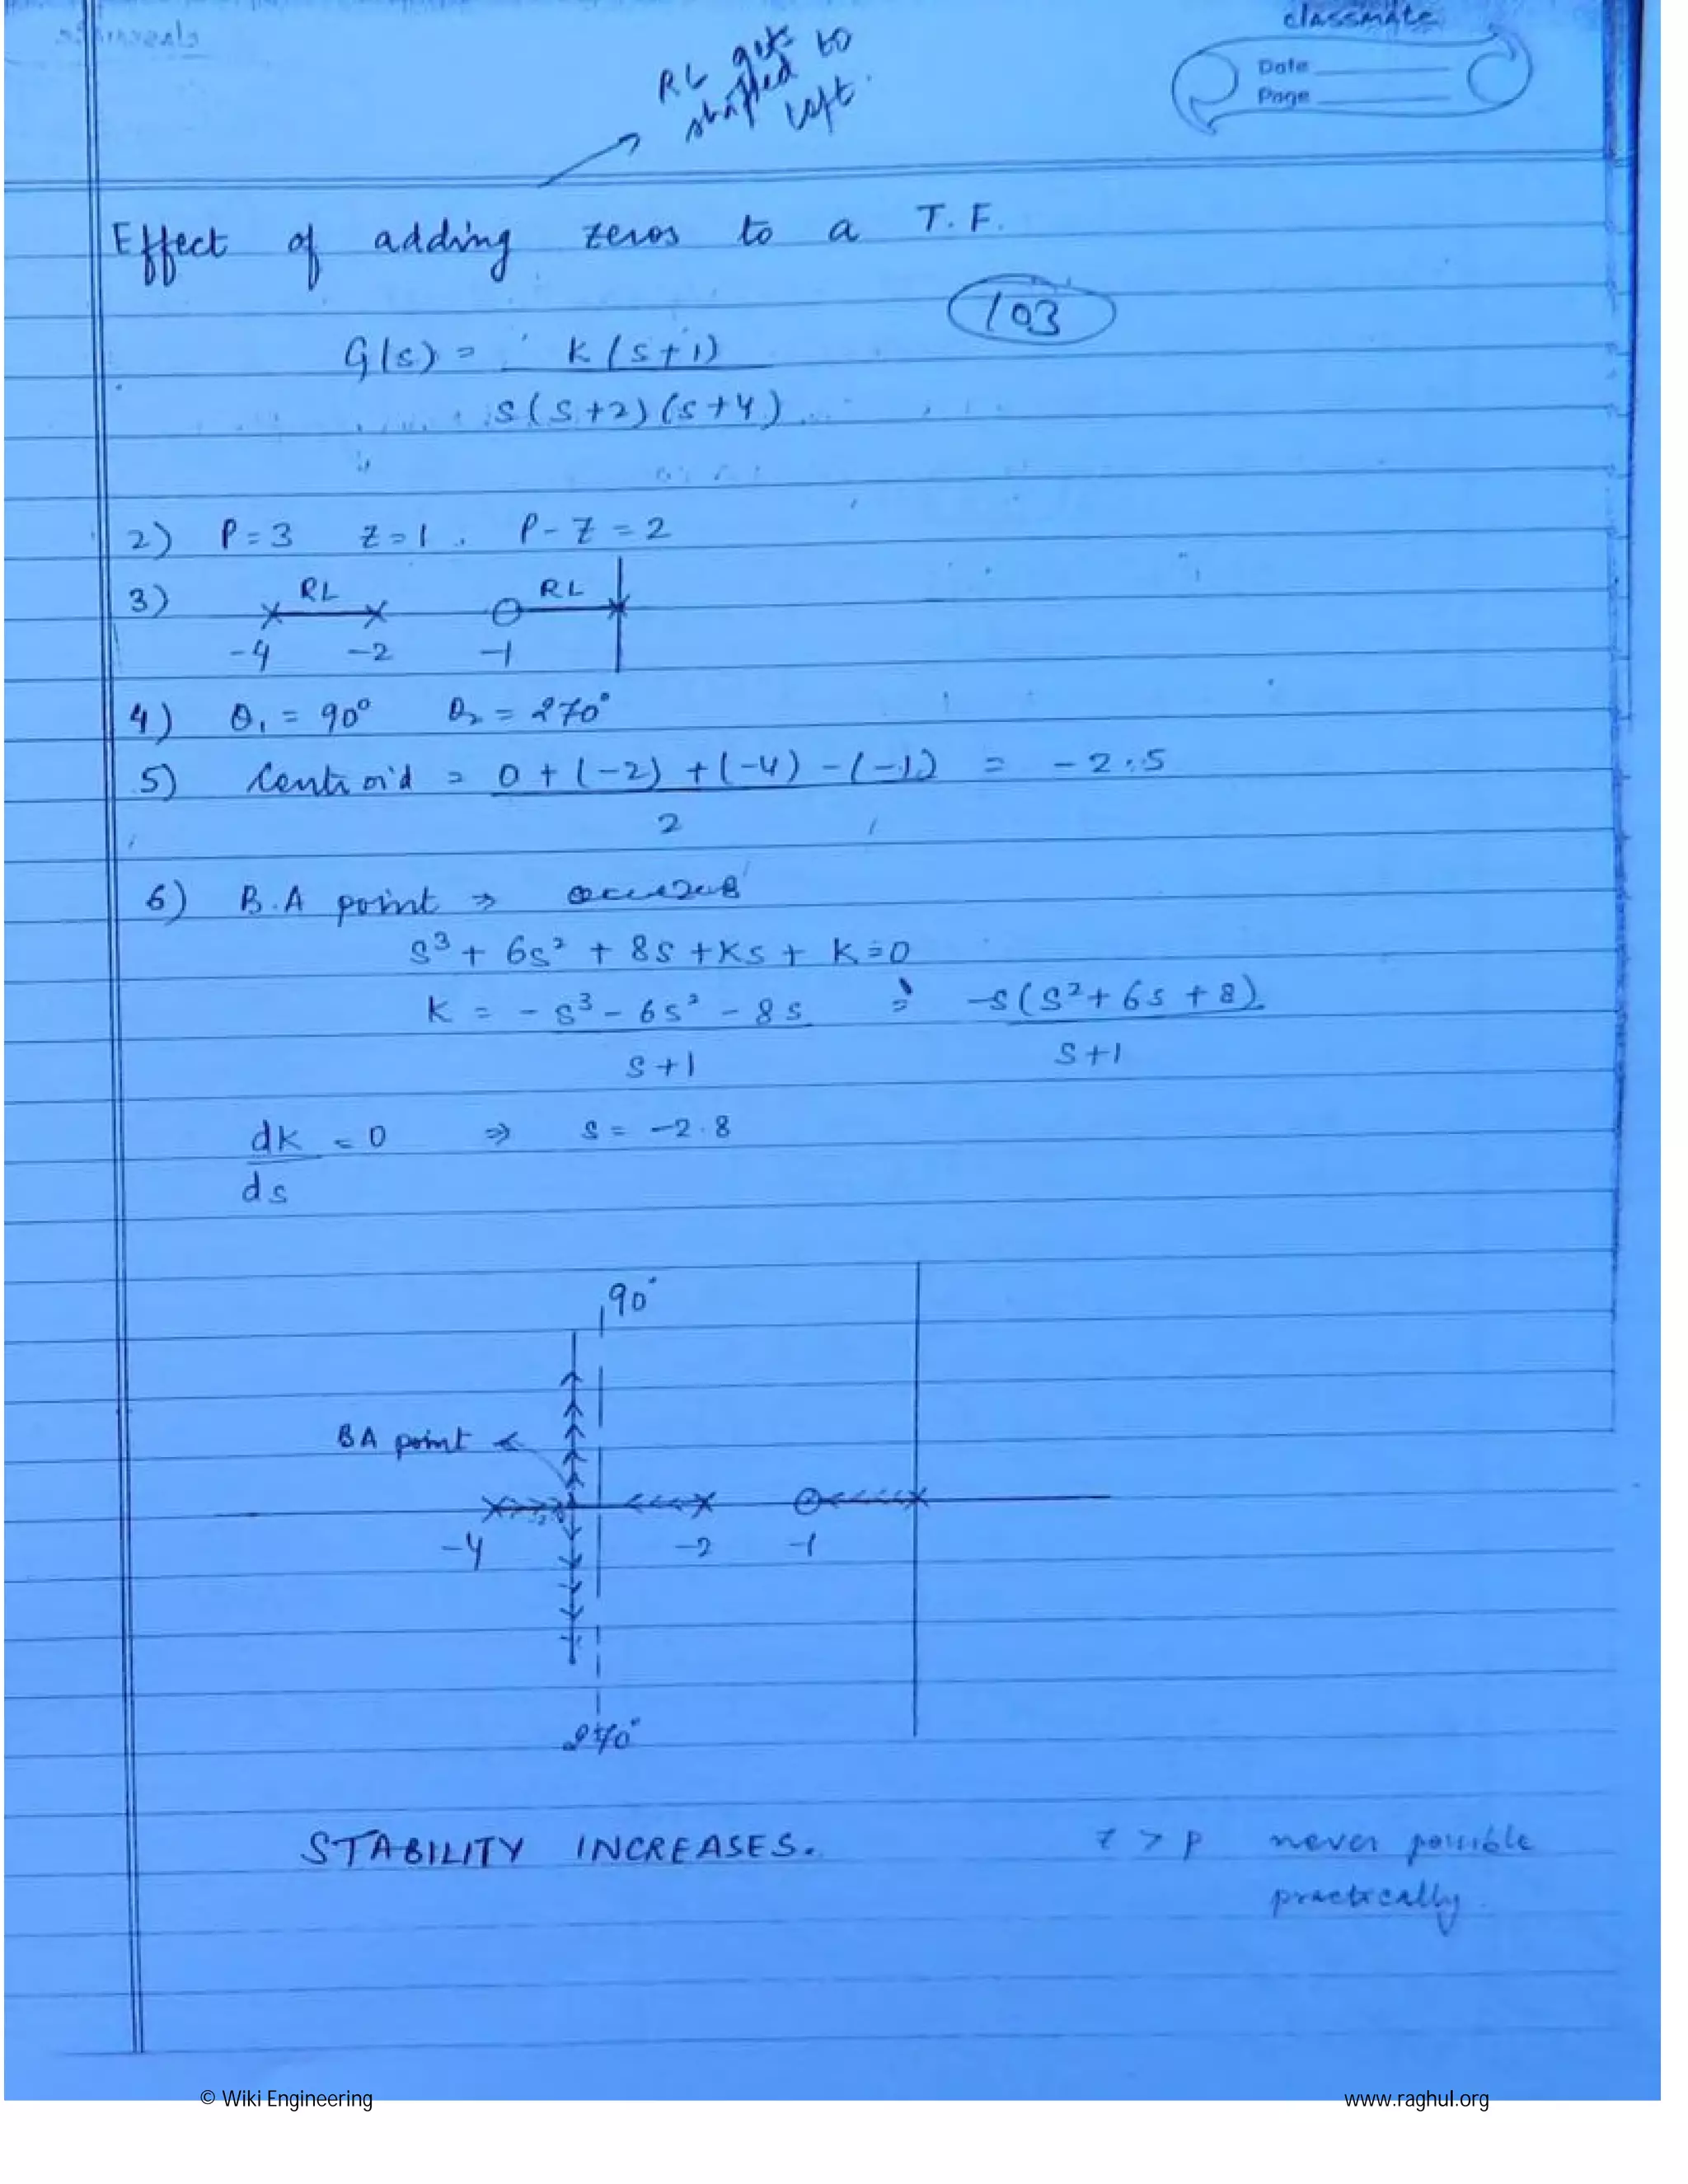 classmate
Date
Page
RL gets
shifted to
left.
Effect of adding zeros to a T.F.
103
G(s) = K(s+1)
s(s+2)(s+4)
2) P=3 Z=1. P-Z=2
3) RL RL
-4 -2 -1
4) θ₁ = 90° θ₂ = 270°
5) Centroid = 0+(-2)+(-4)-(-1) = -2.5
2
6) B.A point ⇒
s³ + 6s² + 8s + Ks + K=0
K = -s³ - 6s² - 8s = -s(s²+6s+8)
s+1 s+1
dK = 0 ⇒ s = -2.8
ds
90°
BA point
-4 -2 -1
270°
STABILITY INCREASES.
z > p never possible
practically.
© Wiki Engineering www.raghul.org